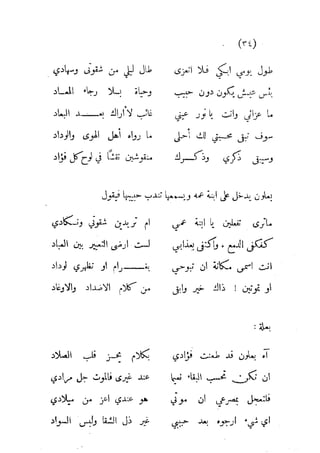 (٣٤)
طول يومي ابكي فلا اتعزى طال ليلي من شقوتى وسهادي
بئس عيش يكون دون حبيب وحياة بلا رجاء المعاد
ما عزائي وانت يا نور عيني غائب لا أراك بعـــد البعاد
سوف تبقى محبتي لك أحلى ما رواه أهل الهوى والوداد
وسيبقى ذكري وذكـــرك منقوشين نقشًا في لوح كل فؤاد
يعلون يدخل على ابنة عمه ويسمعها تندب حبيبها فيقول
ماترى تفعلين يا ابنة عمي ام تريدين شقوتي ونكادي
كفكفى الدمع ، واكتفى بعذابي لست ارضى التعيير بين العباد
انت اسمى مكانة ان تبوحي بغـــرام او تظهري لوداد
او تموتين ! ذاك خير وابقى من كلام الاضداد والاوغاد
بعلة :
آه يعلون قد طعنت فؤادي بكلام يحز قلب الصلاد
ان تكن تحسب البقاء نعيما عند غيرى فالموت جل مرادي
فلتعجل بمصرعي ان موتي هو عندي اعز من ميلادي
اي شيء ارجوه بعد حبيبي غير ذل الشقا ولبس السواد